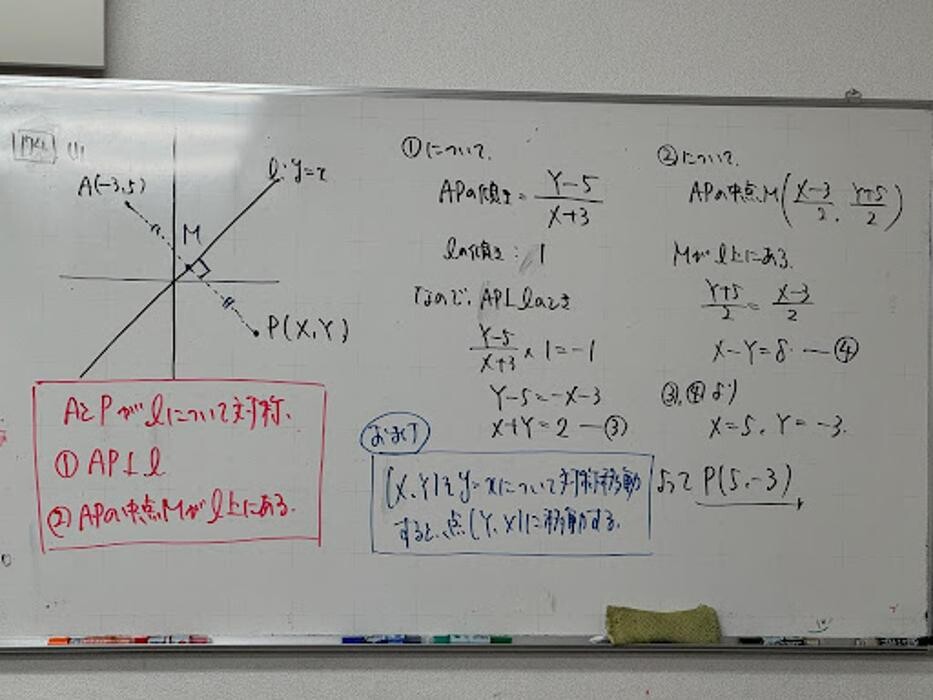 174 (1)
A(-3,5)
l:y=x
M
P(X,Y)
AとPがlについて対称.
① AP⊥l
② APの中点Mがl上にある.
①について.
APの傾き = \frac{Y-5}{X+3}
lの傾き : 1
なので, AP⊥lのとき
\frac{Y-5}{X+3} × 1 = -1
Y-5=-X-3
X+Y=2 ―③
おまけ
(X,Y)をy=xについて対称移動
すると、点(Y,X)に移動する.
②について.
APの中点M(\frac{X-3}{2}, \frac{Y+5}{2})
Mがl上にある.
\frac{Y+5}{2} = \frac{X-3}{2}
X-Y=8 ―④
③,④より
X=5, Y=-3.
よって P(5,-3)